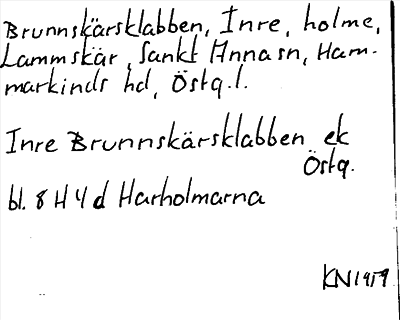 Brunnskärsklabben, Inre, holme,
Lammskär, Sankt Anna sn, Ham-
markinds hd, Östg.l.
Inre Brunnskärsklabben ek
Östg.
bl. 8 H 4 d Harholmarna
KN 1959